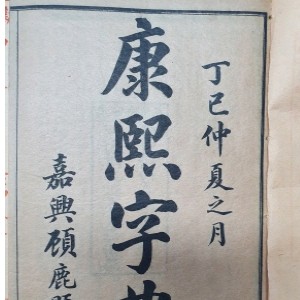 丁巳仲夏之月
康熙字典
嘉興顧鹿